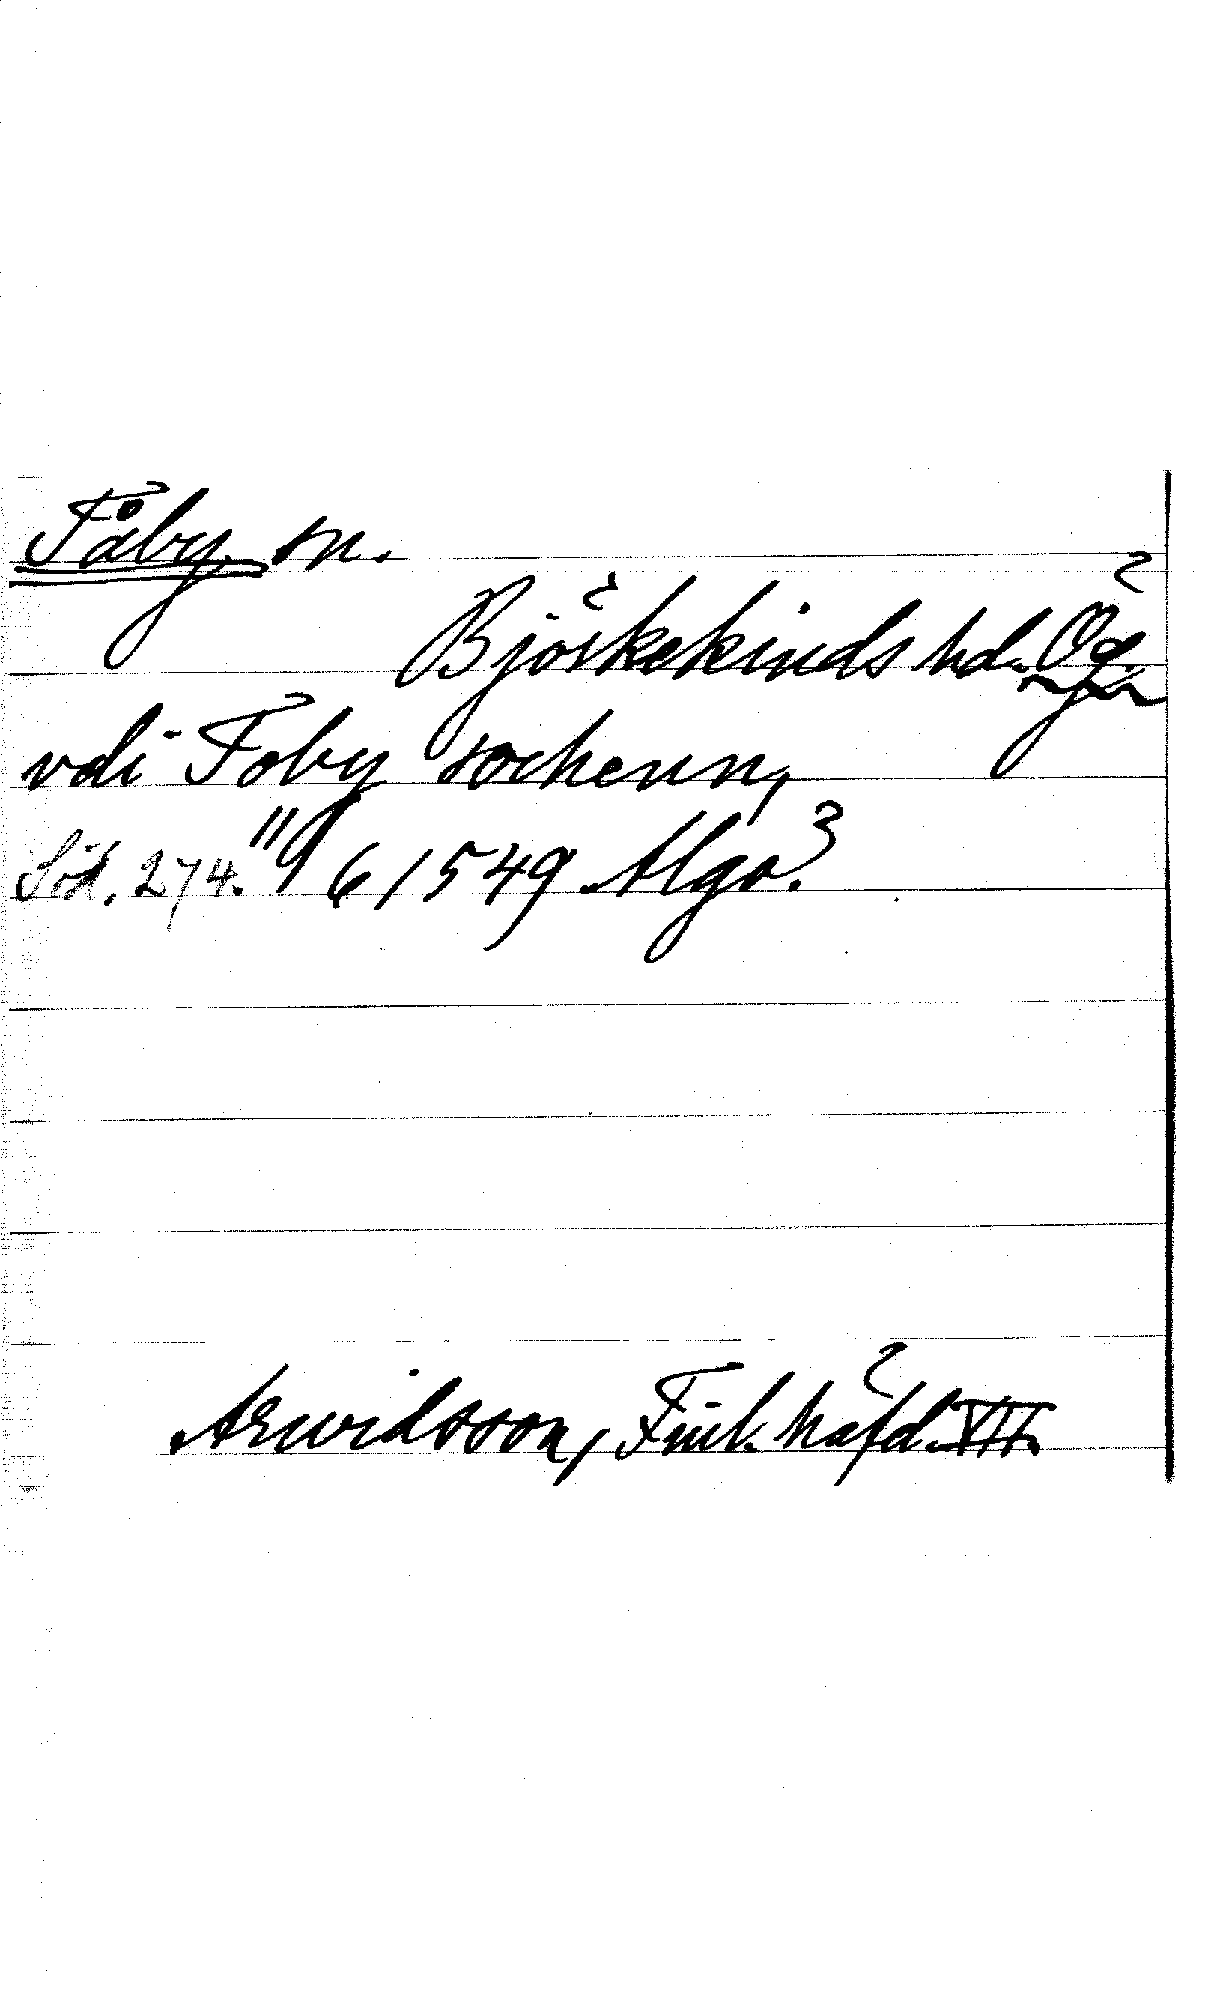 Tåby sn.
Björkekinds hd. Ög.
vdi Toby sochenn,
Söd. 274. 11/6 1549 Algo.
Arwidsson, Finl. häfd. VII.